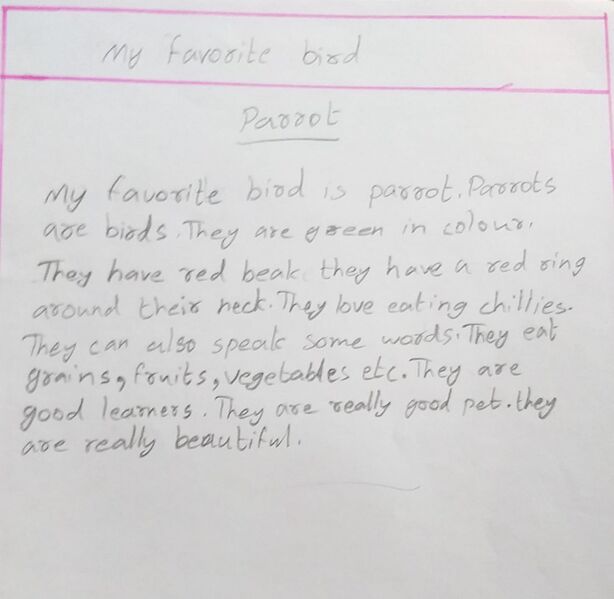 My favorite bird
Parrot
My favorite bird is parrot. Parrots
are birds. They are green in colour.
They have red beak they have a red ring
around their neck. They love eating chillies.
They can also speak some words. They eat
grains, fruits, vegetables etc. They are
good learners. They are really good pet. they
are really beautiful.